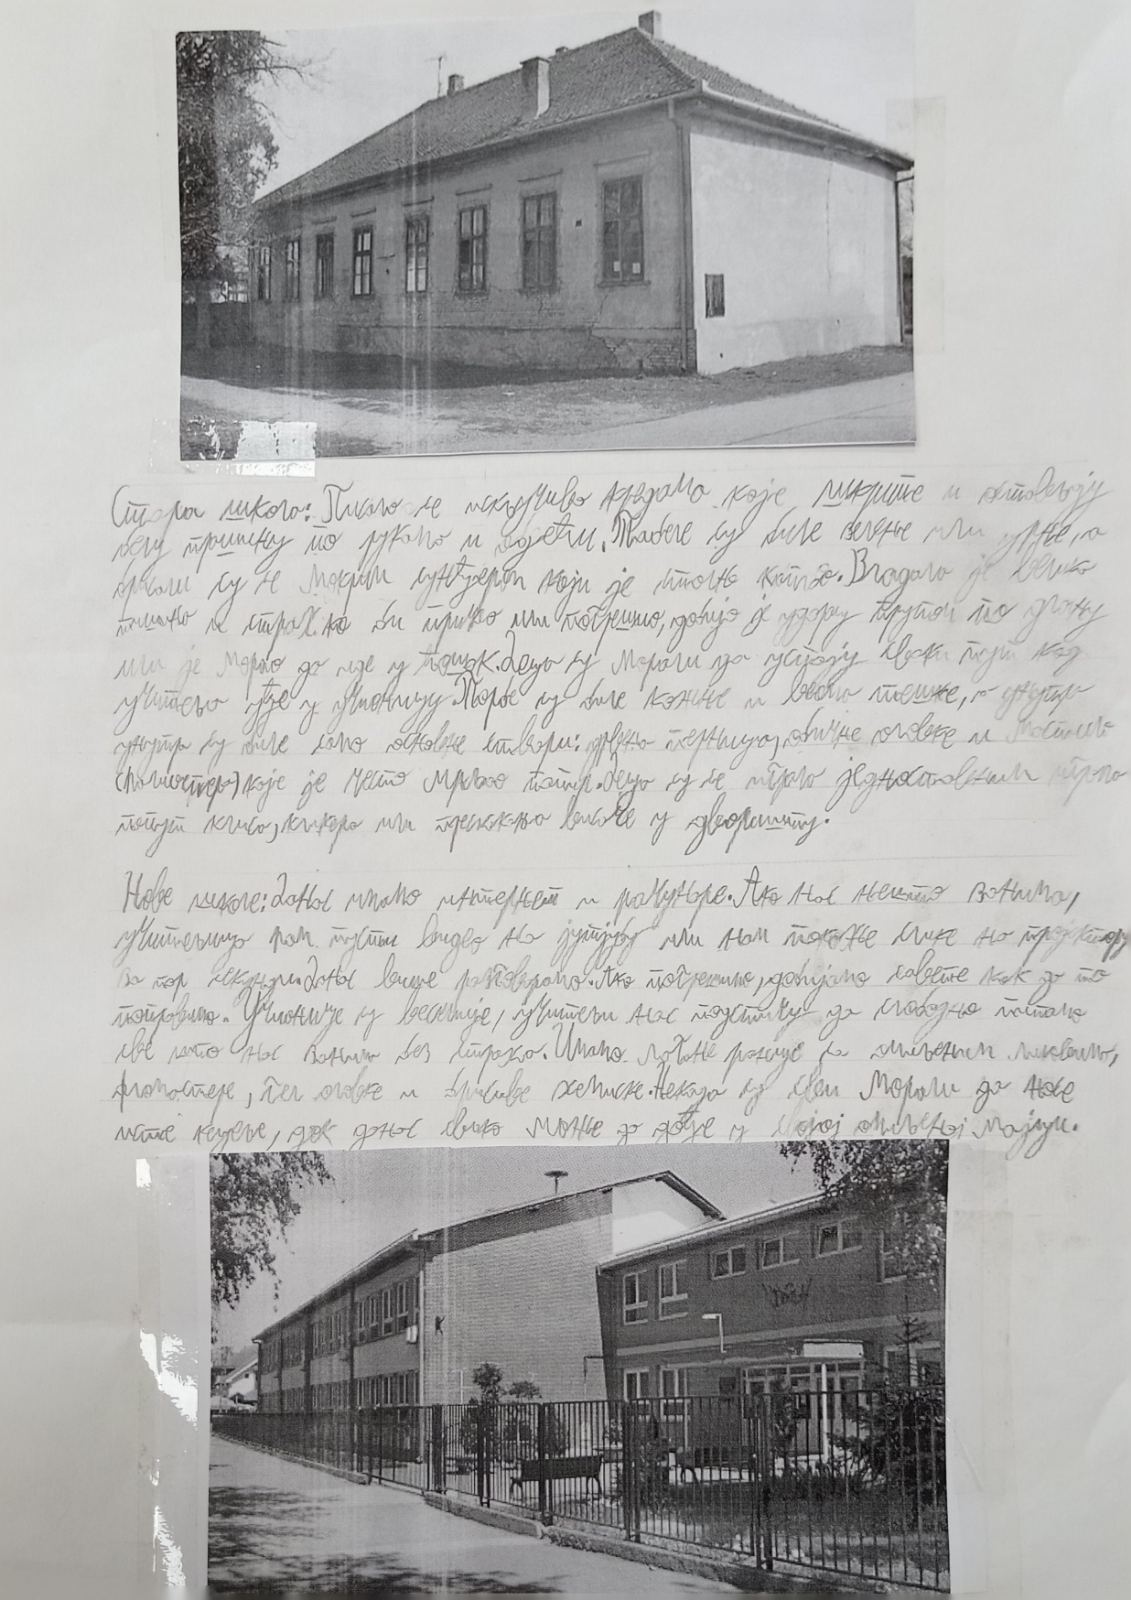 Стара школа: Писало се искључиво кредама које шкрипе и остављају
белу прашину по рукама и одећи. Табле су биле зелене или црне, а
брисали су се мокрим сунђером који је стално капао. Владала је велика
тишина и страх ко би причао или погрешио, добијо је ударац прутом по длану
или је морао да иде у ћошак. Деца су морали да устају сваки пут кад
учитељ уђе у учионицу. Торбе су биле кожне и веома тешке, а унутра
унутра су биле само основне ствари: дрвена перница, обичне оловке и мастило
које је често мрљао папир. Деца су се играла једноставних игара
попут клиса, кликера или прескакања ластиша у дворишту.
Нове школе: Данас имамо интернет и рачунаре. Ако нас нешто занима,
учитељица нам пусти видео на јутјубу или нам покаже слике на пројектору
за пар секунди. Данас више разговарамо. Ако погрешимо, добијамо савете как да то
поправимо. Учионице су веселије, учитељи нас подстичу да слободно питамо
све што нас занима без страха. Имамо лагане ранце са омиљеним ликовима,
фломастере, гел оловке и бришиве хемиске. Некада су сви морали да носе
исте кецеље, док данас свако може да дође у својој омиљеној мајци.